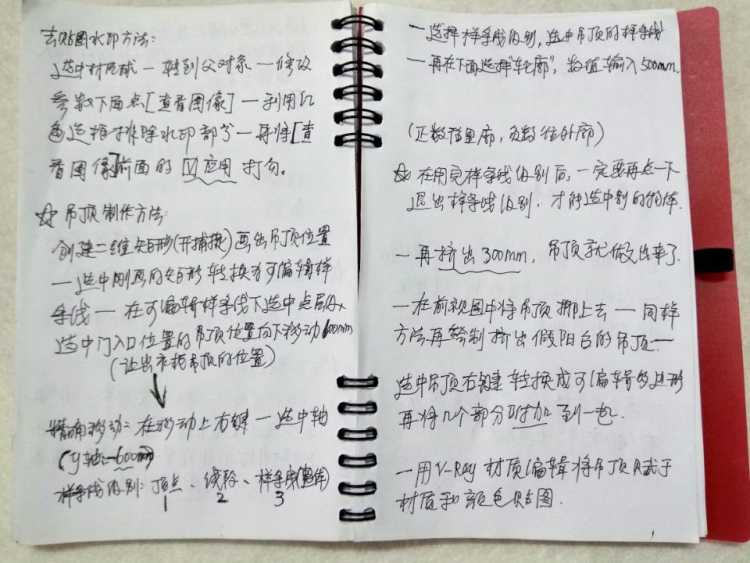 去贴图水印方法:
选中材质球一转到父对象一修改
参数下面点[查看图像]一利用红
色选框排除水印部分一再将[查
看图像]前面的 [√]应用 打勾。
☆ 吊顶制作方法:
创建二维矩形(开捕捉)画出吊顶位置
一选中刚画的矩形 转换为可编辑样
条线一 在可编辑样条线下选中点层级
选中门入口位置的吊顶位置向下移动600mm
(让出衣柜吊顶的位置)
精确移动: 在移动上右键一选中轴
(y轴:-600mm)
样条线级别: 顶点、线段、样条线(整体)
1 2 3
一选择样条线级别,选中吊顶的样条线
一再在下面选择"轮廓",数值输入500mm.
(正数往里廓,负数往外廓)
☆ 在用完样条线级别后,一定要再点一下
退出样条线级别,才能选中别的物体.
一再挤出300mm,吊顶就做出来了.
一在前视图中将吊顶挪上去一同样
方法再绘制挤出假阳台的吊顶一
选中吊顶右键 转换成可编辑多边形
再将几个部分附加到一起.
一用V-Ray 材质编辑将吊顶赋于
材质和颜色贴图.